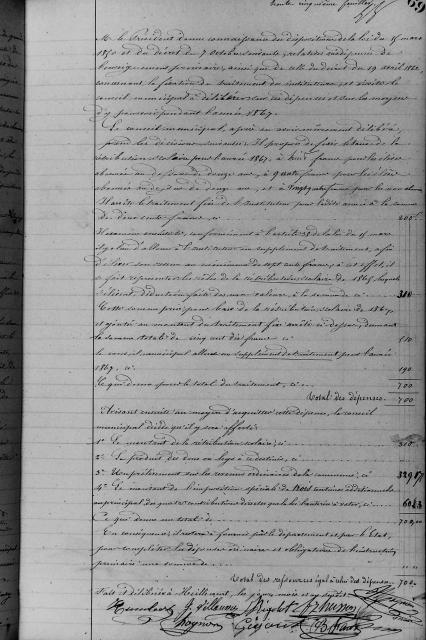 M. le Président donne connaissance des dispositions de la loi du 15 mars
1850 et du décret du 7 octobre suivant, relatives aux dépenses de
l'enseignement primaire, ainsi que de celle du décret du 19 avril 1862,
concernant la fixation du traitement des instituteurs, et invite le
conseil municipal à délibérer sur ces dépenses et sur les moyens
d'y pourvoir pendant l'année 1867.
Le conseil municipal, après en avoir mûrement délibéré,
prend les décisions suivantes: Il propose de fixer le taux de la
rétribution scolaire pour l'année 1867, à huit francs pour les élèves
abonnés au dessous de douze ans, à quatre francs pour les élèves
abonnés
Il arrête le traitement fixe de l'Instituteur pour ladite année à la somme
de deux cents francs ci 200
Il examine ensuite si, conformément à l'article de la loi du 15 mars
il y a lieu d'allouer à l'instituteur un supplément de traitement, afin
d'élever son revenu au minimum de sept cents francs; à cet effet, il
se fait représenter les rôles de la rétribution scolaire de 1865, lesquels
déduction faite des non valeurs, à la somme de ci 310
Cette somme prise pour base de la rétribution scolaire de 1867
et ajoutée au montant du traitement fixe arrêté ci-dessus, donnant
la somme totale de cinq cent dix francs ci 510
le conseil municipal alloue un supplément de traitement pour l'année
1867, ci 190
Ce qui donne pour le total du traitement, ci 700
Total des dépenses 700
Avisant ensuite au moyen d'acquitter cette dépense, le conseil
municipal décide qu'il y sera affecté:
1° Le montant de la rétribution scolaire, ci 310
2° Le produit des dons ou legs à ci
3° Un prélèvement sur les revenus ordinaires de la commune, ci
4° Le montant de l'imposition spéciale de trois centimes additionnels
au principal des quatre contributions directes que la à voter, ci
Ce qui donne un total de 700,00
En conséquence, il restera à fournir par le département et par l'Etat,
pour compléter la dépense ordinaire et obligatoire de l'instruction
primaire une somme de
Total des ressources égal à celui des dépenses 700
Fait et délibéré à les jour, mois et an susdits